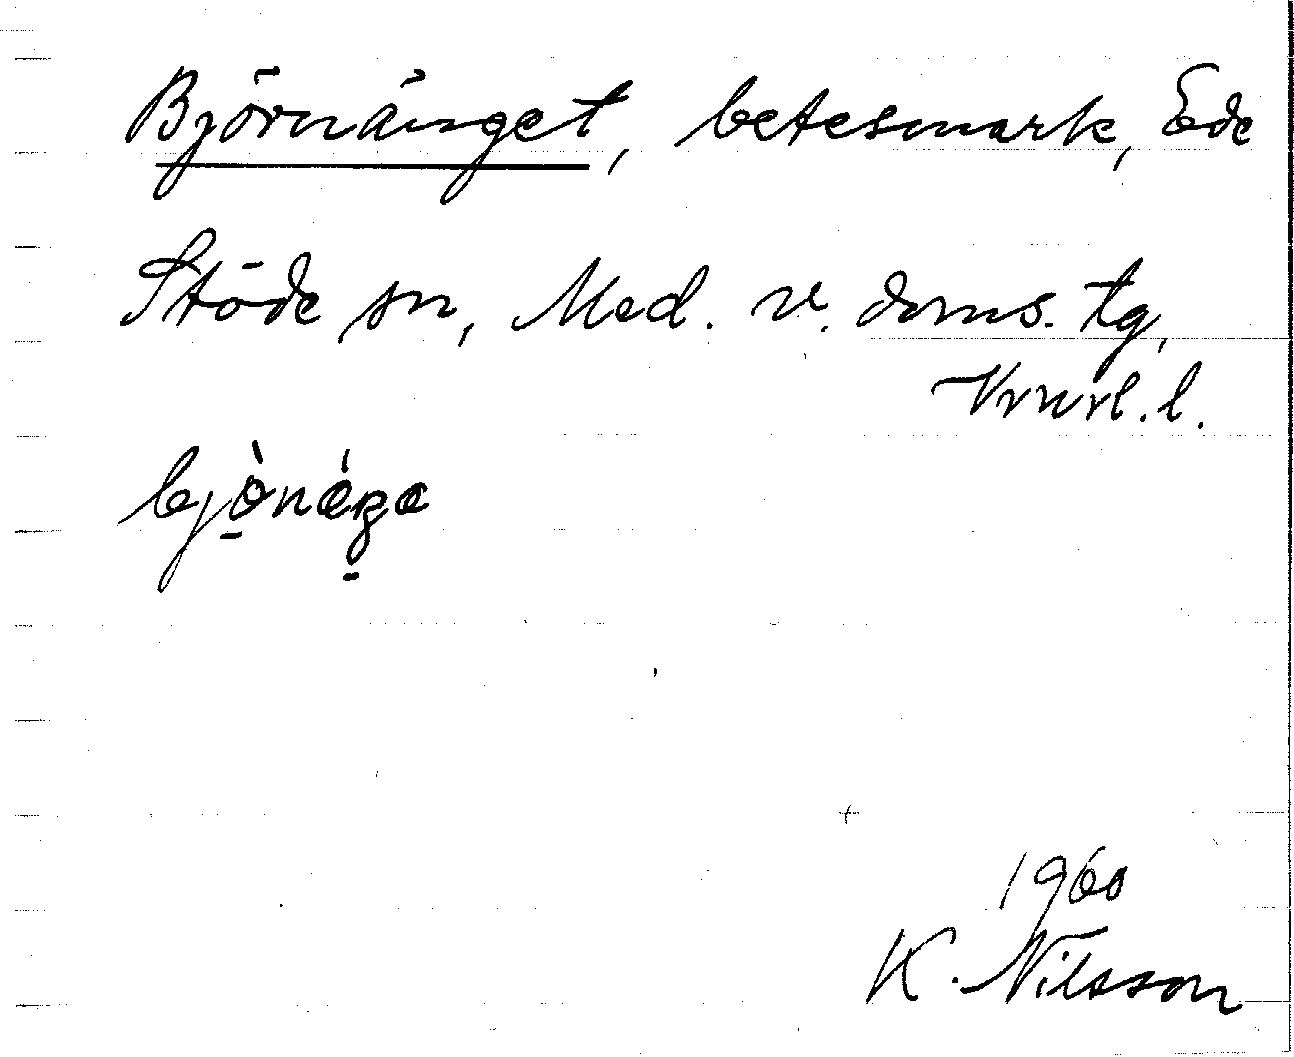 Björnänget, betesmark, Ede
Stöde sn, Med. v. doms. tg,
Vrnrl. l.
1960
K. Nilsson